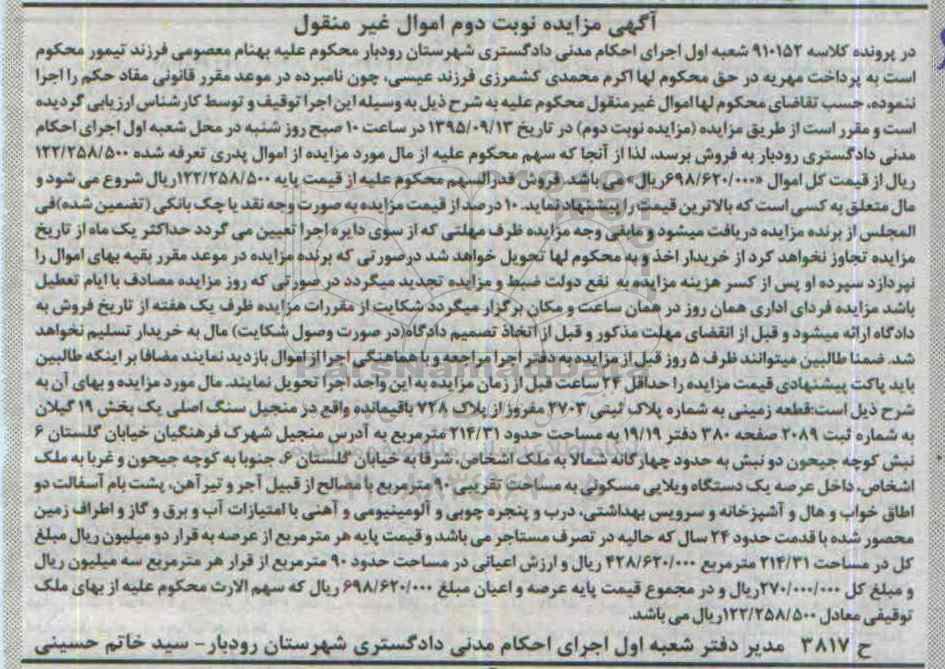 آگهی مزایده نوبت دوم اموال غیر منقول
در پرونده کلاسه ۹۱۰۱۵۲ شعبه اول اجرای احکام مدنی دادگستری شهرستان رودبار محکوم علیه بهنام معصومی فرزند تیمور محکوم
است به پرداخت مهریه در حق محکوم لها اکرم محمدی کشمرزی فرزند عیسی، چون نامبرده در موعد مقرر قانونی مفاد حکم را اجرا
ننموده، حسب تقاضای محکوم لها اموال غیر منقول محکوم علیه به شرح ذیل به وسیله این اجرا توقیف و توسط کارشناس ارزیابی گردیده
است و مقرر است از طریق مزایده (مزایده نوبت دوم) در تاریخ ۱۳۹۵/۰۹/۱۳ در ساعت ۱۰ صبح روز شنبه در محل شعبه اول اجرای احکام
مدنی دادگستری رودبار به فروش برسد، لذا از آنجا که سهم محکوم علیه از مال مورد مزایده از اموال پدری تعرفه شده ۱۲۲/۲۵۸/۵۰۰
ریال از قیمت کل اموال «۶۹۸/۶۲۰/۰۰۰ریال» می باشد. فروش قدرالسهم محکوم علیه از قیمت پایه ۱۲۲/۲۵۸/۵۰۰ریال شروع می شود و
مال متعلق به کسی است که بالاترین قیمت را پیشنهاد نماید. ۱۰ درصد از قیمت مزایده به صورت وجه نقد یا چک بانکی (تضمین شده)فی
المجلس از برنده مزایده دریافت میشود و مابقی وجه مزایده ظرف مهلتی که از سوی دایره اجرا تعیین می گردد حداکثر یک ماه از تاریخ
مزایده تجاوز نخواهد کرد از خریدار اخذ و به محکوم لها تحویل خواهد شد درصورتی که برنده مزایده در موعد مقرر بقیه بهای اموال را
نپردازد سپرده او پس از کسر هزینه مزایده به نفع دولت ضبط و مزایده تجدید میگردد در صورتی که روز مزایده مصادف با ایام تعطیل
باشد مزایده فردای اداری همان روز در همان ساعت و مکان برگزار میگردد شکایت از مقررات مزایده ظرف یک هفته از تاریخ فروش به
دادگاه ارائه میشود و قبل از انقضای مهلت مذکور و قبل از اتخاذ تصمیم دادگاه(در صورت وصول شکایت) مال به خریدار تسلیم نخواهد
شد. ضمنا طالبین میتوانند ظرف ۵ روز قبل از مزایده به دفتر اجرا مراجعه و با هماهنگی اجرا از اموال بازدید نمایند مضافا بر اینکه طالبین
باید پاکت پیشنهادی قیمت مزایده را حداقل ۲۴ ساعت قبل از زمان مزایده به این واحد اجرا تحویل نمایند. مال مورد مزایده و بهای آن به
شرح ذیل است:قطعه زمینی به شماره پلاک ثبتی ۲۷۰۳ مفروز از پلاک ۷۲۸ باقیمانده واقع در منجیل سنگ اصلی یک بخش ۱۹ گیلان
به شماره ثبت ۲۰۸۹ صفحه ۳۸۰ دفتر ۱۹/۱۹ به مساحت حدود ۲۱۴/۳۱ مترمربع به آدرس منجیل شهرک فرهنگیان خیابان گلستان ۶
نبش کوچه جیحون دو نبش به حدود چهارگانه شمالا به ملک اشخاص، شرقا به خیابان گلستان ۶، جنوبا به کوچه جیحون و غربا به ملک
اشخاص، داخل عرصه یک دستگاه ویلایی مسکونی به مساحت تقریبی ۹۰ متر مربع با مصالح از قبیل آجر و تیر آهن، پشت بام آسفالت دو
اطاق خواب و هال و آشپزخانه و سرویس بهداشتی، درب و پنجره چوبی و آلومینیومی و آهنی با امتیازات آب و برق و گاز و اطراف زمین
محصور شده با قدمت حدود ۲۴ سال که حالیه در تصرف مستاجر می باشد و قیمت پایه هر مترمربع از عرصه به قرار دو میلیون ریال مبلغ
کل در مساحت ۲۱۴/۳۱ مترمربع ۴۲۸/۶۲۰/۰۰۰ ریال و ارزش اعیانی در مساحت حدود ۹۰ مترمربع از قرار هر مترمربع سه میلیون ریال
و مبلغ کل ۲۷۰/۰۰۰/۰۰۰ریال و در مجموع قیمت پایه عرصه و اعیان مبلغ ۶۹۸/۶۲۰/۰۰۰ ریال که سهم الارث محکوم علیه از بهای ملک
توقیفی معادل ۱۲۲/۲۵۸/۵۰۰ریال می باشد.
ح ۳۸۱۷ مدیر دفتر شعبه اول اجرای احکام مدنی دادگستری شهرستان رودبار - سید خاتم حسینی
ParsNamadData